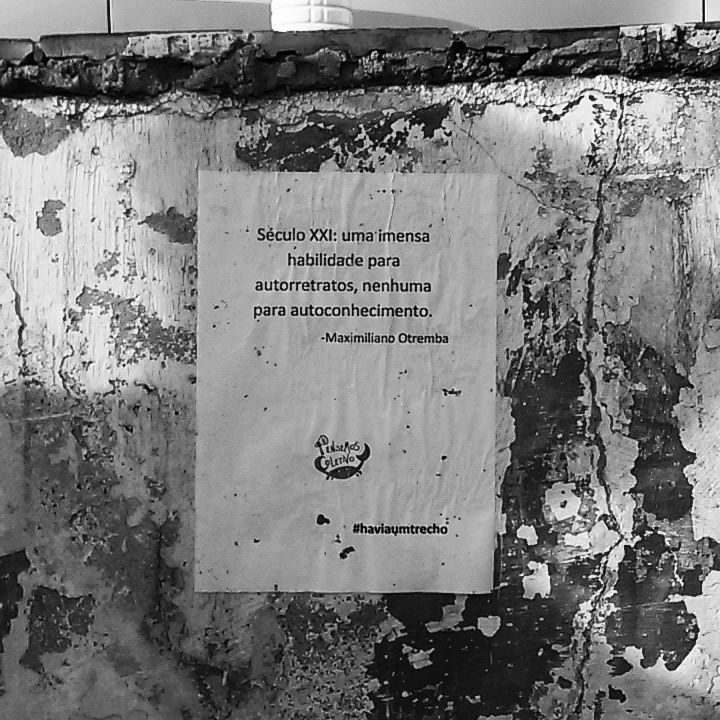 Século XXI: uma imensa
habilidade para
autorretratos, nenhuma
para autoconhecimento.
-Maximiliano Otremba
PENSEMOS
COLETIVO
#haviaumtrecho